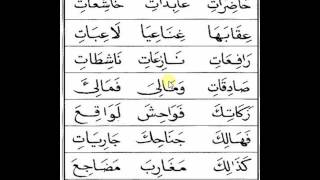 حَاضِرَاتِ عَابِدَاتِ خَاشِعَاتِ
عِقَابَهَا غِنَاعِيَا لَاعِبَاتِ
رَافِعَاتِ نَازِعَاتِ نَاشِطَاتِ
صَادِقَاتِ وَمَالِىَ فَمَالِئُ
زَكَاتِكَ فَوَاحِشَ لَوَاقِعَ
فَهَالِكَ جَنَاحِكَ جَارِيَاتِ
كَذَالِكَ مَغَارِبَ مَضَاجِعَ